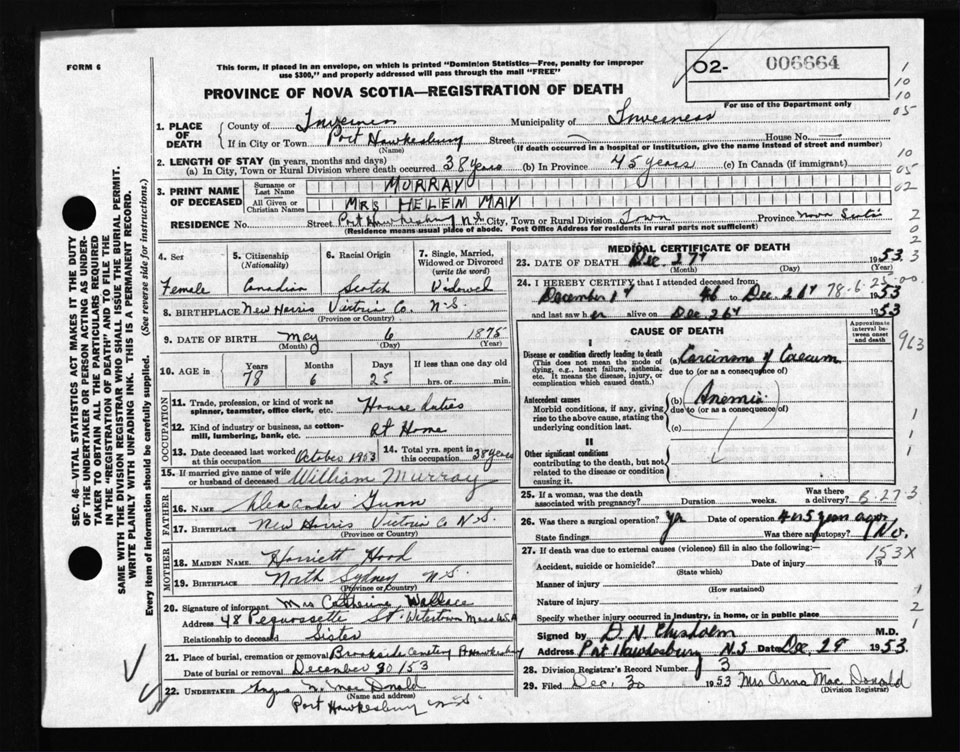 FORM 6
This form, if placed in an envelope, on which is printed "Dominion Statistics—Free, penalty for improper
use $300," and properly addressed will pass through the mail "FREE"
02- 006664
For use of the Department only
PROVINCE OF NOVA SCOTIA—REGISTRATION OF DEATH
1. PLACE OF DEATH
County of Inverness Municipality of Inverness
If in City or Town Port Hawkesbury Street — House No. —
(Name) (If death occurred in a hospital or institution, give the name instead of street and number)
2. LENGTH OF STAY (in years, months and days)
(a) In City, Town or Rural Division where death occurred 38 years (b) In Province 45 years (c) In Canada (if immigrant)
3. PRINT NAME OF DECEASED
Surname or Last Name MURRAY
All Given or Christian Names MRS HELEN MAY
RESIDENCE No. Street Port Hawkesbury N.S. City, Town or Rural Division Town Province Nova Scotia
(Residence means usual place of abode. Post Office Address for residents in rural parts not sufficient)
4. Sex
Female
5. Citizenship (Nationality)
Canadian
6. Racial Origin
Scotch
7. Single, Married, Widowed or Divorced (write the word)
Widowed
8. BIRTHPLACE New Harris Victoria Co. N-S.
(Province or Country)
9. DATE OF BIRTH May 6 1875
(Month) (Day) (Year)
10. AGE in Years Months Days If less than one day old
78 6 25 hrs. or min.
OCCUPATION
11. Trade, profession, or kind of work as
spinner, teamster, office clerk, etc. House duties
12. Kind of industry or business, as cotton-
mill, lumbering, bank, etc. At Home
13. Date deceased last worked at this occupation October 1953
14. Total yrs. spent in this occupation 38 years
15. If married give name of wife or husband of deceased William Murray
FATHER
16. Name Alexander Gunn
17. BIRTHPLACE New Harris Victoria Co N.S.
(Province or Country)
MOTHER
18. MAIDEN NAME Harriett Hood
19. BIRTHPLACE North Sydney N.S.
(Province or Country)
20. Signature of informant Mrs Catherine Wallace
Address 48 Pequossette St. Watertown Mass U.S.A
Relationship to deceased Sister
21. Place of burial, cremation or removal Brookside Cemetery P. Hawkesbury
Date of burial or removal December 30 153
22. UNDERTAKER Angus N. MacDonald
(Name and address)
Port Hawkesbury N-S.
MEDICAL CERTIFICATE OF DEATH
23. DATE OF DEATH Dec. 27th 1953
(Month) (Day) (Year)
24. I HEREBY CERTIFY that I attended deceased from:
December 1st 46 to Dec. 26th 1953
78-6-25-00
and last saw her alive on Dec 26th 1953
CAUSE OF DEATH
Approximate interval between onset and death
I
Disease or condition directly leading to death
(This does not mean the mode of dying, e.g., heart failure, asthenia, etc. It means the disease, injury, or complication which caused death.)
(a) Carcinoma of Caecum
due to (or as a consequence of)
Antecedent causes
Morbid conditions, if any, giving rise to the above cause, stating the underlying condition last.
(b) Anemia
due to (or as a consequence of)
(c)
II
Other significant conditions
contributing to the death, but not related to the disease or condition causing it.
25. If a woman, was the death associated with pregnancy? Duration weeks. Was there a delivery? 6-27 3
26. Was there a surgical operation? Yes Date of operation 4 or 5 years ago
State findings Was there an autopsy? No.
27. If death was due to external causes (violence) fill in also the following:—
Accident, suicide or homicide? Date of injury 19
(State which)
Manner of injury
(How sustained)
Nature of injury
Specify whether injury occurred in industry, in home, or in public place
Signed by D. N. Chisholm M.D.
Address Port Hawkesbury N.S Date Dec. 29 1953.
28. Division Registrar's Record Number 3
29. Filed Dec. 30 1953 Mrs Anna MacDonald
(Division Registrar)
SEC. 46—VITAL STATISTICS ACT MAKES IT THE DUTY
OF THE UNDERTAKER OR PERSON ACTING AS UNDER-
TAKER TO OBTAIN ALL THE PARTICULARS REQUIRED
IN THE "REGISTRATION OF DEATH" AND TO FILE THE
SAME WITH THE DIVISION REGISTRAR WHO SHALL ISSUE THE BURIAL PERMIT.
WRITE PLAINLY WITH UNFADING INK. THIS IS A PERMANENT RECORD.
Every item of information should be carefully supplied. (See reverse side for instructions.)
1
10
10
05
10
05
02
2
0
2
3
963
1
1
1
1
153X
1
2
1